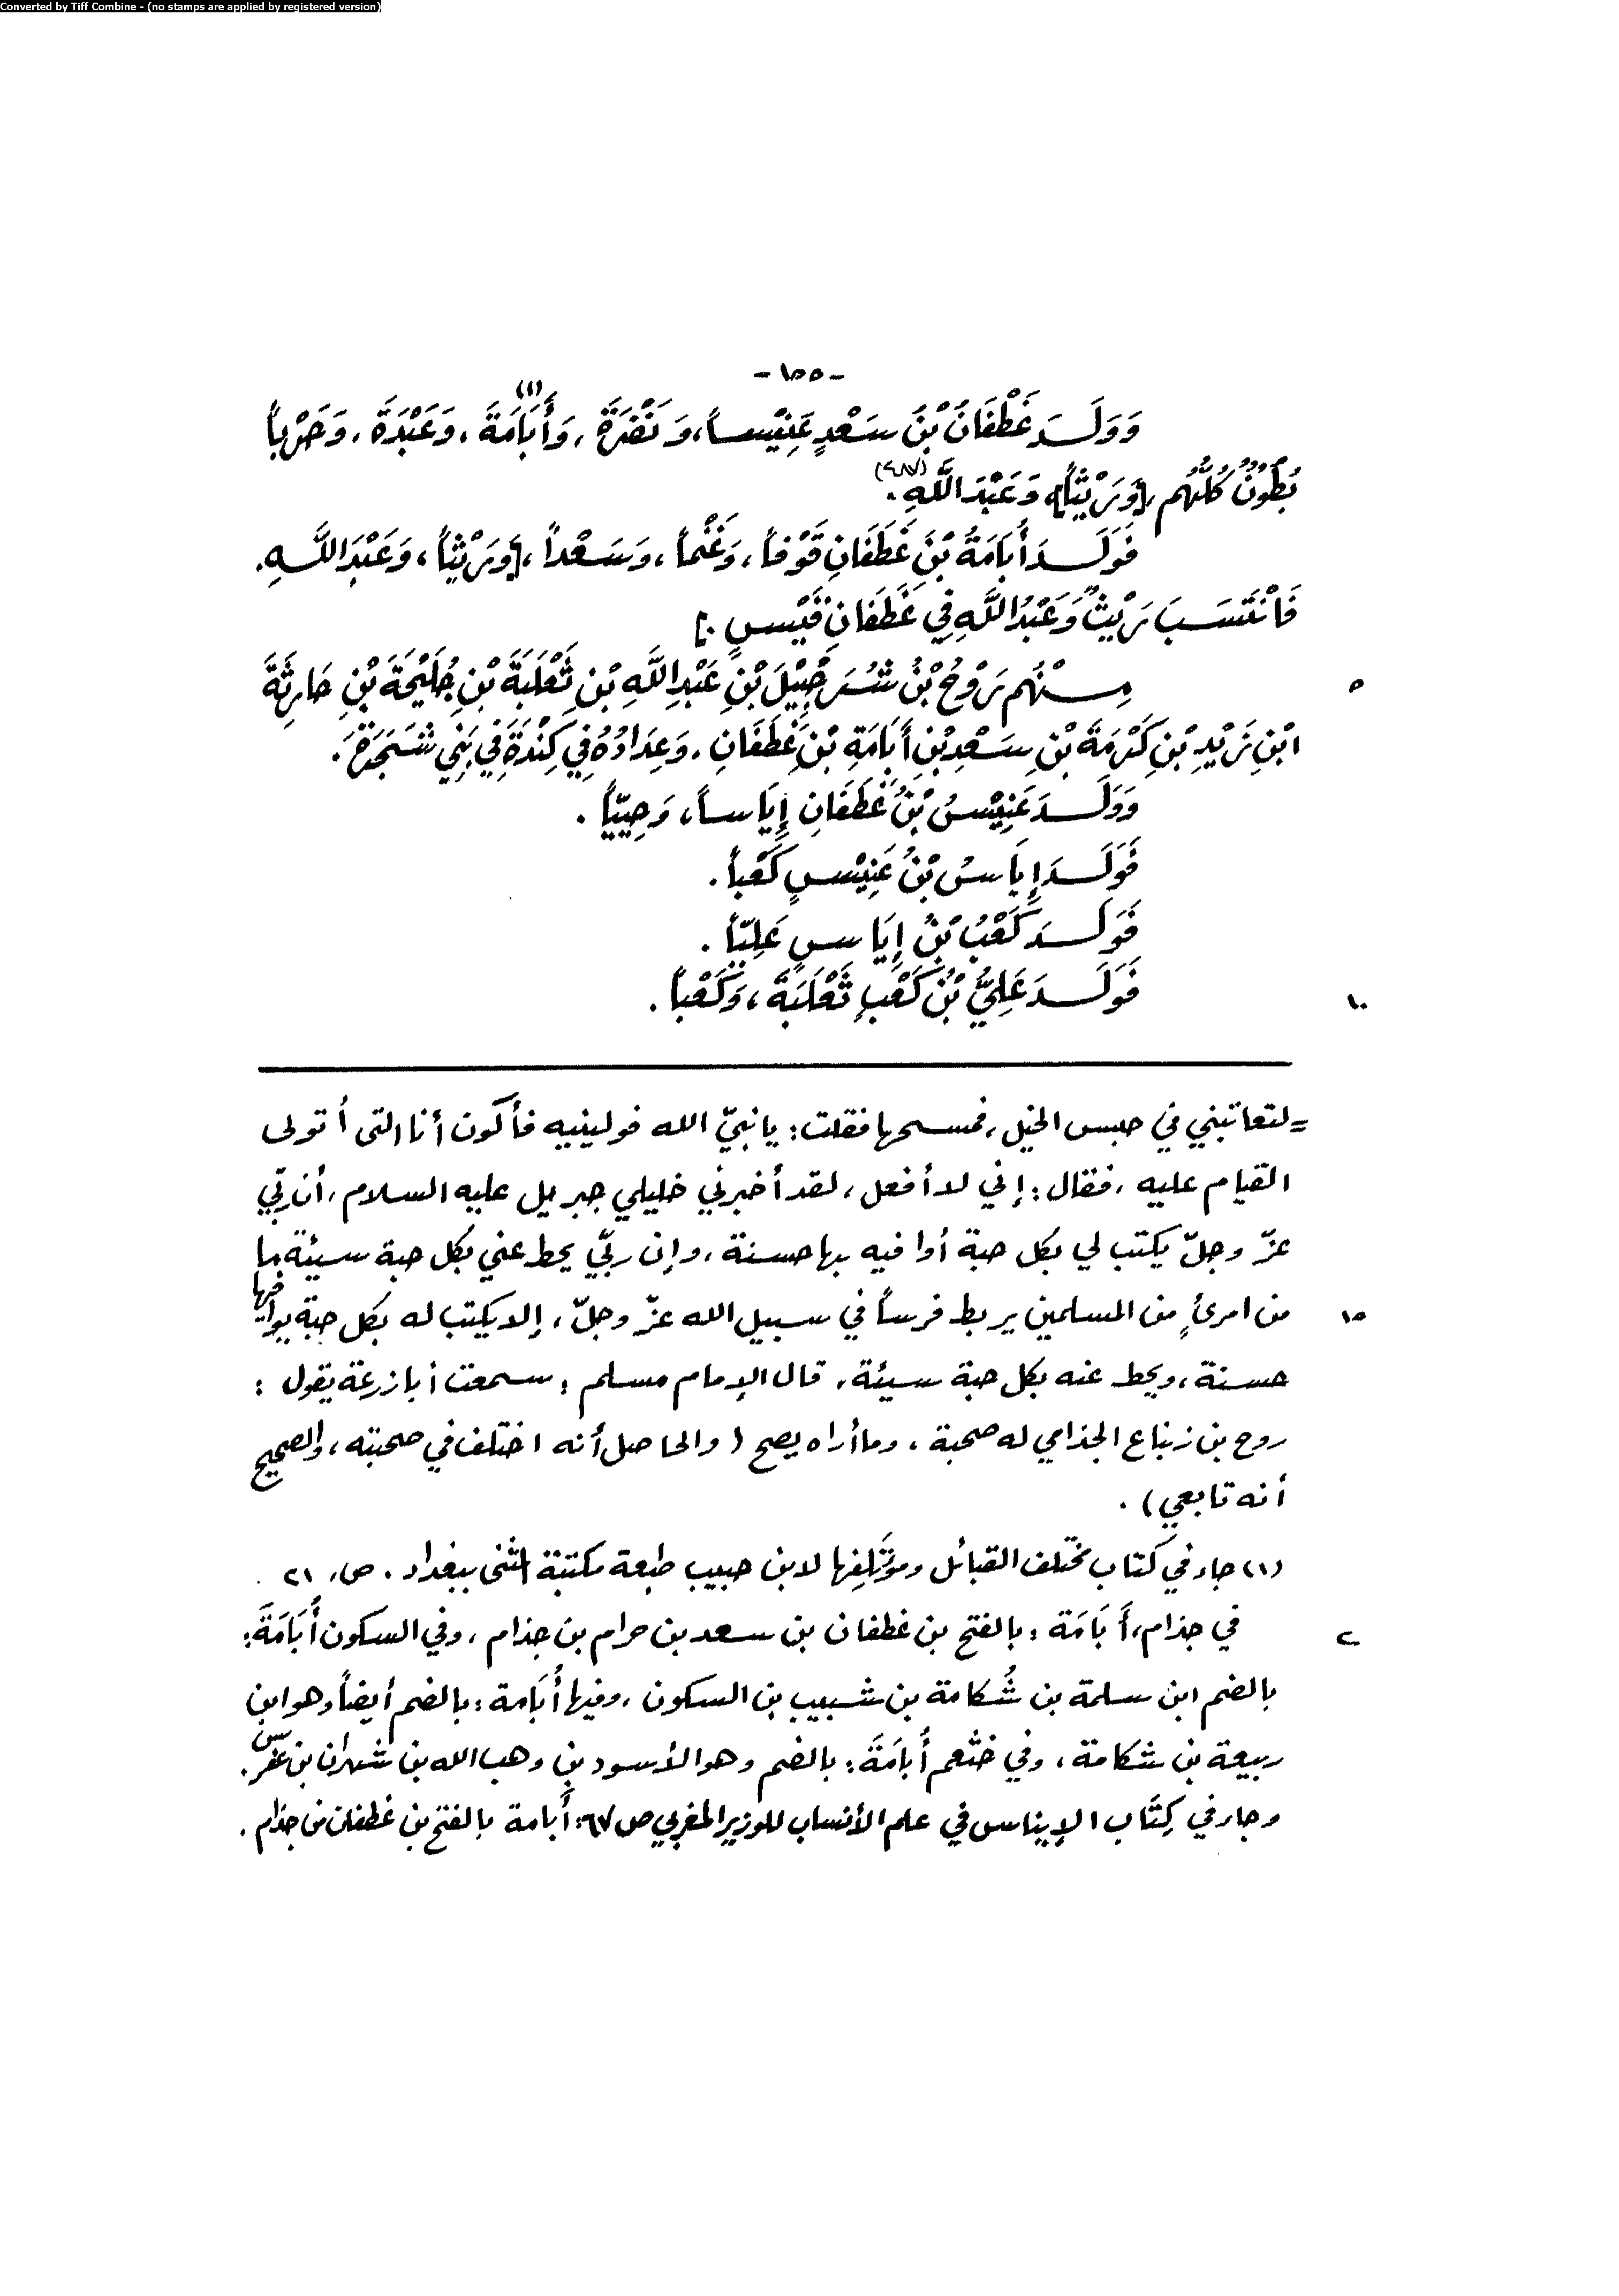 Converted by Tiff Combine - (no stamps are applied by registered version)
- ١٥٥ -
وَوَلَدَ غَطْفَانُ بْنُ سَعْدٍ عَنِيْساً، وَنَضْرَةَ، وَأَبَامَةَ(١)، وَعَبْدَةَ، وَحَرْباً
بُطُونٌ كُلُّهُم، [وَرَيْثاً] وَعَبْدَ اللَّهِ(٤٨٧).
فَوَلَدَ أَبَامَةُ بْنُ غَطَفَانِ قَوْفاً، وَغَنْماً، وَسَعْداً، [وَرَيْثاً، وَعَبْدَ اللَّهِ.
فَانْتَسَبَ رَيْثٌ وَعَبْدُ اللَّهِ فِي غَطَفَانِ قَيْسٍ.]
مِنْهُم رَوْحُ بْنُ شُرَحْبِيْلَ بْنِ عَبْدِ اللَّهِ بْنِ ثَعْلَبَةَ بْنِ جُلَيْحَةَ بْنِ حَارِثَةَ
٥
ابْنِ زَيْدِ بْنِ كَرْمَةَ بْنِ سَعْدِ بْنِ أَبَامَةِ بْنِ غَطَفَانِ. وَعِدَادُهُ فِي كِنْدَةَ فِي بَنِي شَجَرَةَ.
وَوَلَدَ عَنِيْسُ بْنُ غَطَفَانِ إِيَاساً، وَحِيَيّاً.
فَوَلَدَ إِيَاسُ بْنُ عَنِيْسٍ كَعْباً.
فَوَلَدَ كَعْبُ بْنُ إِيَاسٍ عَلِيّاً.
فَوَلَدَ عَلِيُّ بْنُ كَعْبٍ ثَعْلَبَةَ، وَكَعْباً.
١٠
= لتعاتبني في حبس الخيل، فمسحها فقلت: يا نبيّ الله فولينيه فأكون أنا التى أتولى
القيام عليه، فقال: إني لا أفعل، لقد أخبرني خليلي جبريل عليه السلام، أن ربّي
عزّ وجلّ يكتب لي بكل حبة أوافيه بها حسنة، وإن ربّي يحط عني بكل حبة سيئة ما
من امرئٍ من المسلمين يربط فرساً في سبيل الله عزّ وجلّ، إلا يكتب له بكل حبّة يوافيها
١٥
حسنة، ويحط عنه بكل حبة سيئة. قال الإمام مسلم: سمعت أبا زرعة يقول:
روح بن زنباع الجذامي له صحبة، وما أراه يصح (والحاصل أنه اختلف في صحبته، والصحيح
أنه تابعي).
(١) جاء في كتاب مختلف القبائل ومؤتلفها لابن حبيب طبعة مكتبة المثنى ببغداد. ص، ٢١
في جذام، أَبَامَة: بالفتح بن غطفان بن سعد بن حرام بن جذام، وفي السكون أُبَامَةَ:
٢
بالضم ابن سلمة بن شُكامة بن شبيب بن السكون، وفيها أُبَامة: بالضم أيضاً وهو ابن
ربيعة بن شكامة، وفي خثعم أُبامَةَ: بالضم وهو الأسود بن وهب الله بن شهران بن عفرس.
وجاء في كِتَاب الإيناس في علم الأنساب للوزير المغربي ص ٦٧: أَبامة بالفتح بن غطفان من جذام.